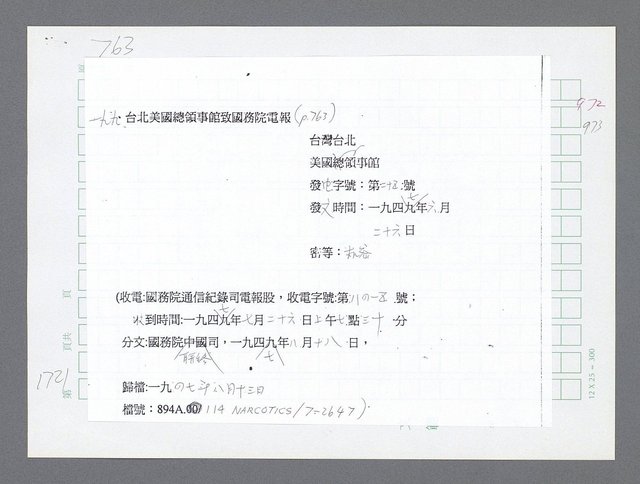 763
一九九、台北美國總領事館致國務院電報(p.763)
972
973
台灣台北
美國總領事館
發電字號:第二十五號
發文時間:一九四九年六月
七
二十六日
密等:機密
(收電:國務院通信紀錄司電報股,收電字號:第八四一五號;
七
收到時間:一九四九年七月二十六日上午七點三十分
分文:國務院中國司,一九四九年八月十八日,
七
歸檔:一九四七年八月十三日
檔號:894A.00/114 NARCOTICS/7-2647)
頁
頁共
第
1721
12 X 25 = 300